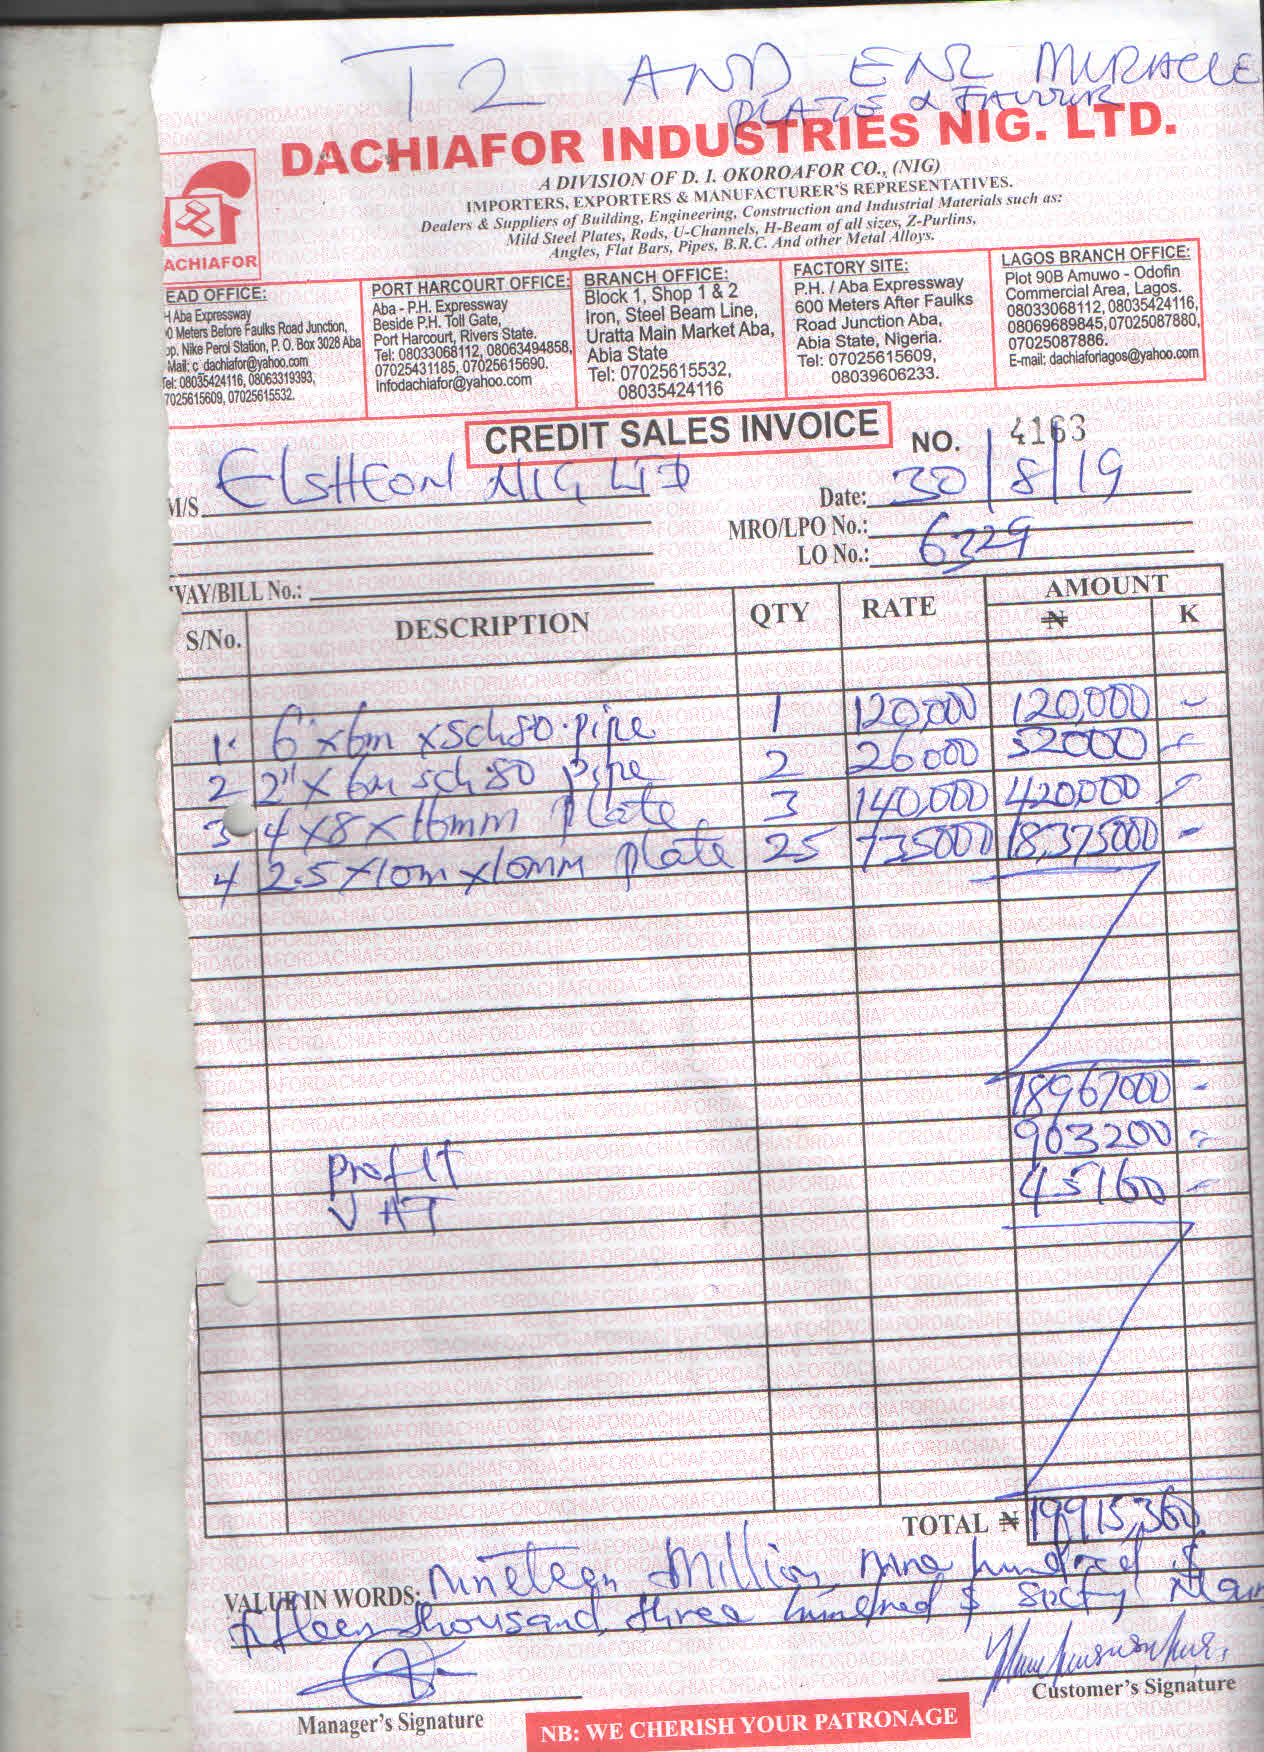 T2 AND ENL MIRACLE
PLATE & FAVOUR
DACHIAFOR INDUSTRIES NIG. LTD.
A DIVISION OF D. I. OKOROAFOR CO., (NIG)
IMPORTERS, EXPORTERS & MANUFACTURER'S REPRESENTATIVES.
Dealers & Suppliers of Building, Engineering, Construction and Industrial Materials such as:
Mild Steel Plates, Rods, U-Channels, H-Beam of all sizes, Z-Purlins,
Angles, Flat Bars, Pipes, B.R.C. And other Metal Alloys.
ACHIAFOR
EAD OFFICE:
H Aba Expressway
0 Meters Before Faulks Road Junction,
pp. Nike Perol Station, P. O. Box 3028 Aba
Mail: c_dachiafor@yahoo.com
Tel: 08035424116, 08063319393,
7025615609, 07025615532.
PORT HARCOURT OFFICE:
Aba - P.H. Expressway
Beside P.H. Toll Gate,
Port Harcourt, Rivers State.
Tel: 08033068112, 08063494858,
07025431185, 07025615690.
Infodachiafor@yahoo.com
BRANCH OFFICE:
Block 1, Shop 1 & 2
Iron, Steel Beam Line,
Uratta Main Market Aba,
Abia State
Tel: 07025615532,
08035424116
FACTORY SITE:
P.H. / Aba Expressway
600 Meters After Faulks
Road Junction Aba,
Abia State, Nigeria.
Tel: 07025615609,
08039606233.
LAGOS BRANCH OFFICE:
Plot 90B Amuwo - Odofin
Commercial Area, Lagos.
08033068112, 08035424116,
08069689845, 07025087880,
07025087886.
E-mail: dachiaforlagos@yahoo.com
CREDIT SALES INVOICE NO. 4163
M/S ElSHEON NIG LTD
Date: 30/8/19
MRO/LPO No.:
LO No.: 6229
WAY/BILL No.:
S/No. DESCRIPTION QTY RATE AMOUNT
₦ K
1. 6"x6m xsch80.pipe 1 120,000 120,000 -
2 2"x6m sch 80 pipe 2 26000 52000 -
3 4x8x16mm plate 3 140,000 420,000 -
4 2.5x10mx10mm plate 25 735000 18,375000 -
18967000 -
Profit 903200 -
VAT 45160 -
TOTAL ₦ 19915,360
VALUE IN WORDS: Nineteen Million, nine hundred &
fifteen thousand, three hundred & sixty Naira
Manager's Signature
Customer's Signature
NB: WE CHERISH YOUR PATRONAGE